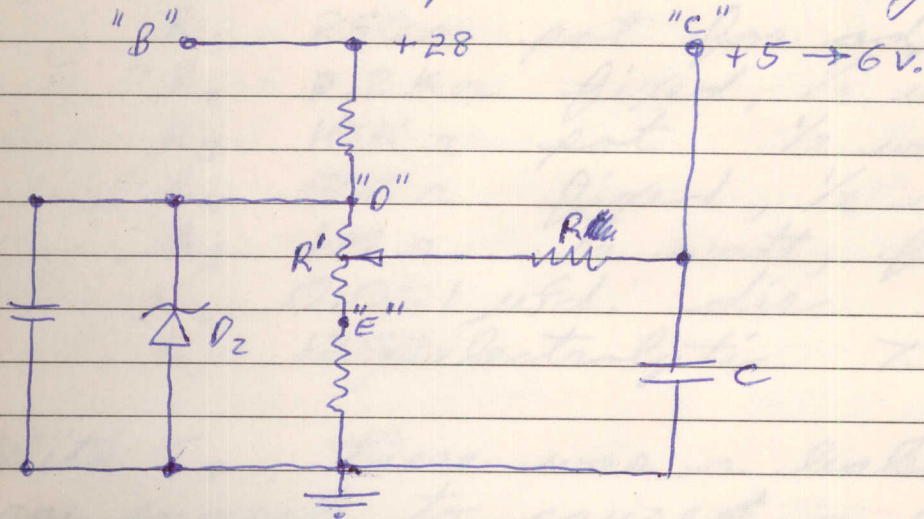 "B" +28 "C" +5 → 6 V.
"D"
R' R
"E"
D2
C